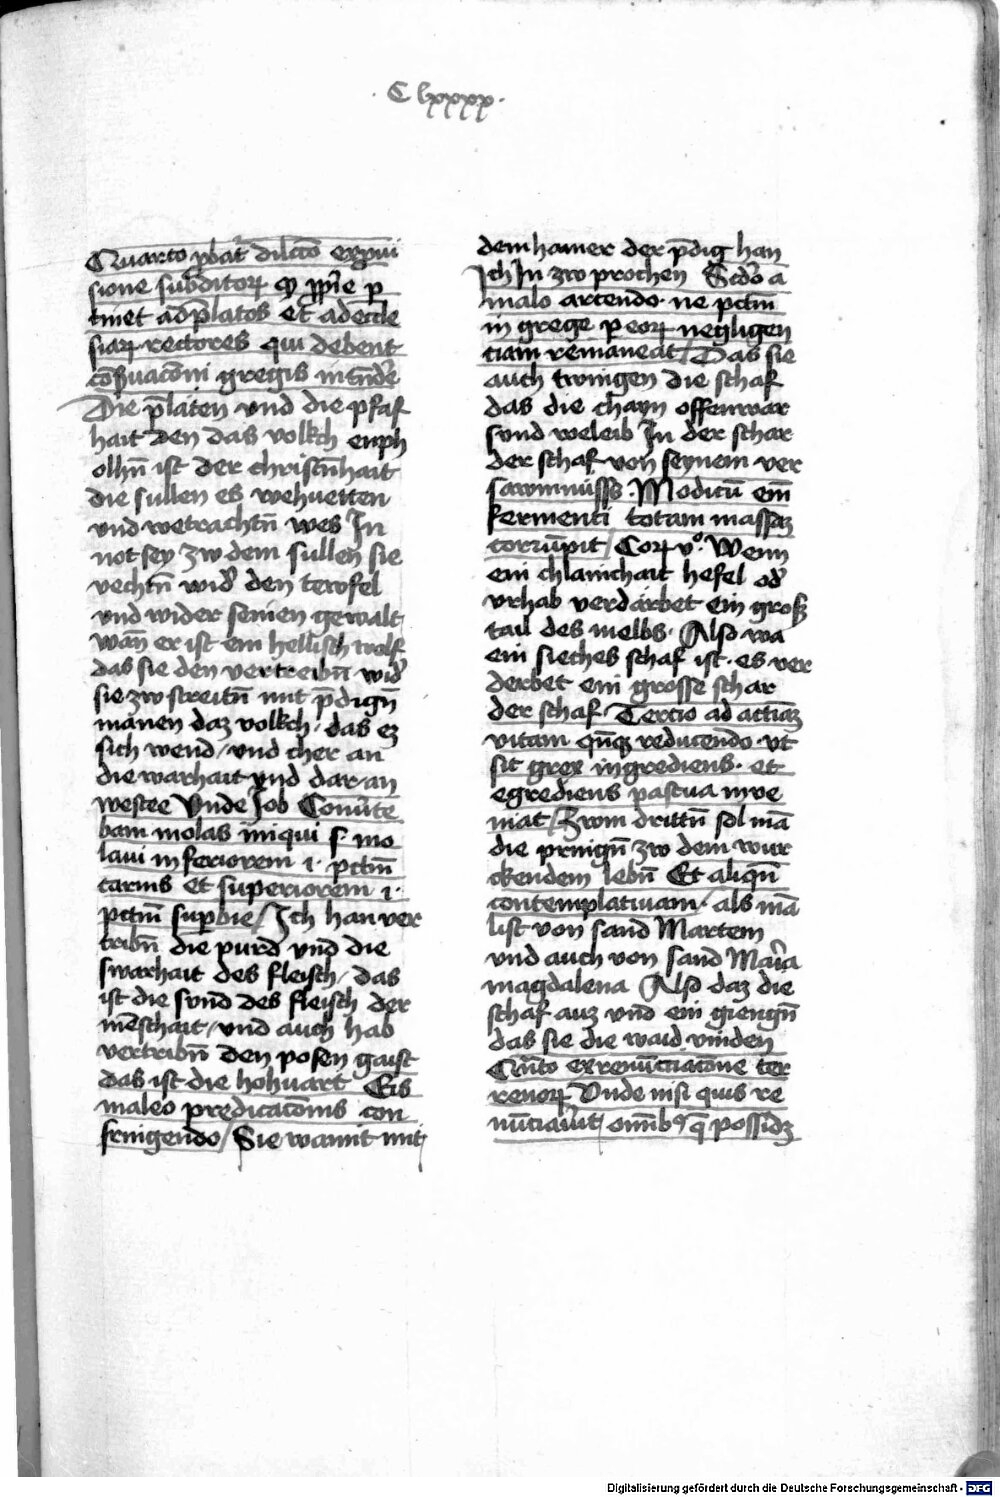 · C lxxxx ·
Quarto ꝓbat᷑ dilc̄cō expīu
sione subditoꝝ qꝫ ꝓpꝛie ꝑ
tinet ad p̄latos et ad eccle
siaꝝ rectores qui debent
cōẜuacōni gregis intēdẽ
Die p̄laten vnd die pfaf
hait den das volkch enph
olhn̄ ist der christn̄hait
die sullen es wehuetten
vnd wetrachtn̄ wes In
not sey zw dem sullen sie
vechtn̄ wid᷑ den tewfel
vnd wider seinen gewalt
wan̄ er ist ein hellisch wolf
das sie den vertreibn̄ wid᷑
sie zw streitn̄ mit p̄dign̄
manen daz volkch · das ez
sich wend / vnd cher an
die warhait vnd dar an
westee Vnde Job Conūte
bam molas iniqui s· mo
laui inferiorem i· pctm̄
carnis et superiorem i·
pctm̄ suꝑbie / Ich han ver
tribn̄ die purd vnd die
swarhait des fleisch / das
ist die sund des fleisch der
mēschait / vnd auch hab
vertribn̄ den posen gaist
das ist die hohuart Eis
maleo predicacōnis con
fringendo / Sie wamit mit
dem hamer der p̄dig han
Ich In zw prochen Scd̄o a
malo arcendo · ne pctm̄
in grege ꝑ eoꝝ negligen
tiam remaneat / Das sie
auch twingen die schaf
das die chayn offenwar
sund weleib In der schar
der schaf von seynem ver
sawmnüss · Modicū em̄
fermenti totam massaꝫ
corrūpit / Coꝝ vº · Wenn
ein chlainchait hefel od᷑
vrhab verdarbet ein groß
tail des melbs · Also wa
ein sieches schaf ist · es ver
derbet ein grosse schar
der schaf · Tercio ad actiuaꝫ
vitam qn̄qꝫ reducendo · vt
sit grex ingrediens · et
egrediens pascua inve
niat / Zwm drittn̄ sol mā
die pringn̄ zw dem wur
ckendem lebn̄ Et aliqn̄
contemplatiuam · als mā
list von sand Martem
vnd auch von sand Maria
magdalena Also daz die
schaf auz vnd ein giengn̄
das sie die waid vinden
Qūto ex renūcciacōne ter
renoꝝ Vnde nisi quis re
nūtiau᷑it omīb⁹ q̄ possidꝫ
Digitalisierung gefördert durch die Deutsche Forschungsgemeinschaft - DFG